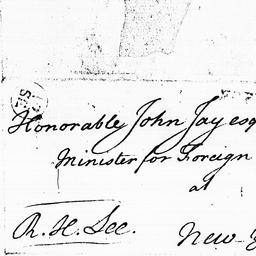 Honorable John Jay esq
Minister for Foreign
at
R. H. Lee.
New-